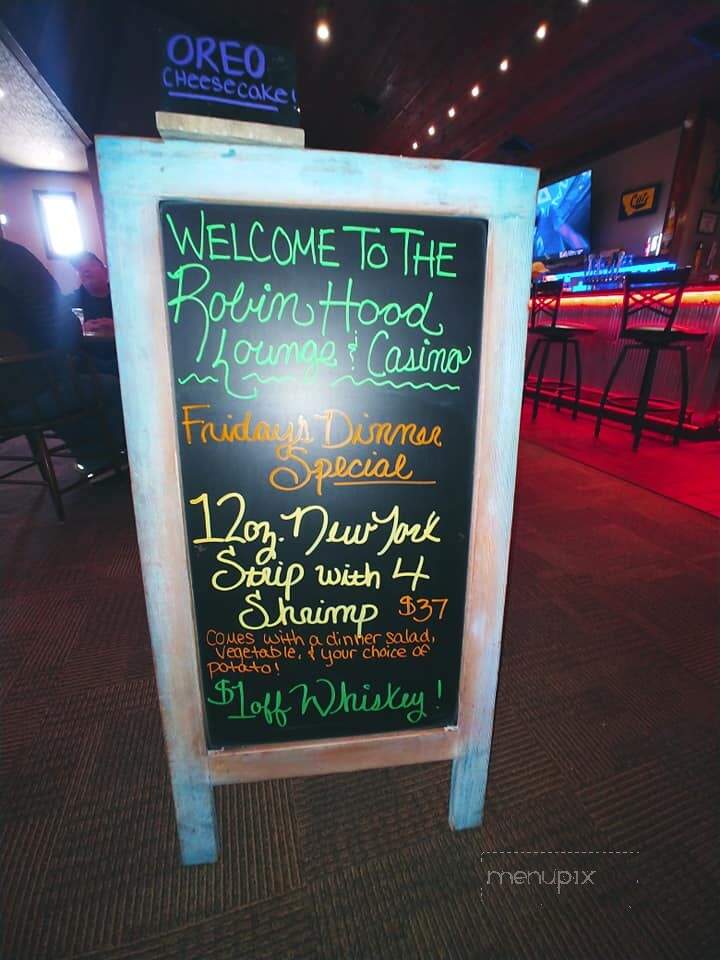 OREO
CHeesecake!
WELCOME TO THE
Robin Hood
Lounge & Casino
Friday's Dinner
Special
12oz. New York
Strip with 4
Shrimp $37
Comes with a dinner salad,
vegetable, & your choice of
potato!
$1 off Whiskey!
menupix